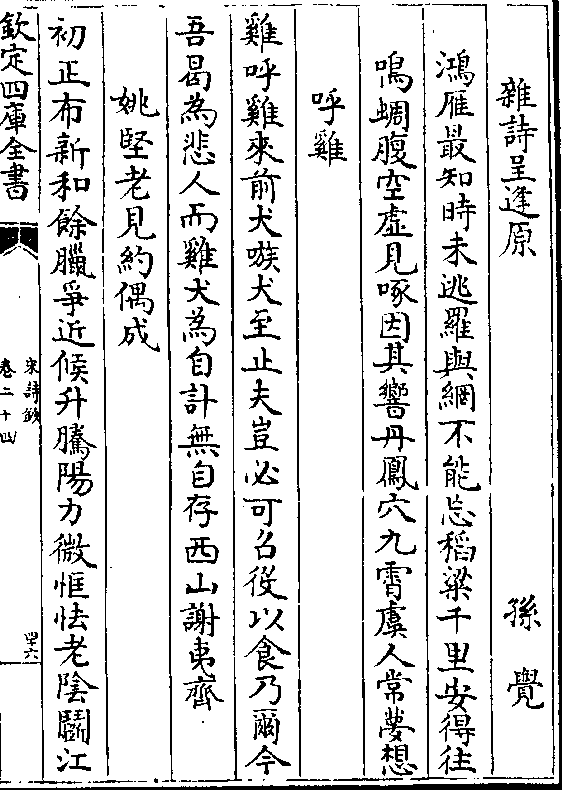 雜詩呈逢原　孫覺
鴻雁最知時未逃羅與網不能忘稻粱千里安得徃
鳴蜩腹空虛見啄因其響丹鳳穴九霄虞人常夢想
呼雞
雞呼雞來前犬嗾犬至止夫豈必可召役以食乃爾今
吾曷為悲人而雞犬為自計無自存西山謝夷齊
姚堅老見約偶成
初正布新和餘臘爭近候升騰陽力微恇怯老陰鬬江
欽定四庫全書
宋詩鈔
卷二十四
四六